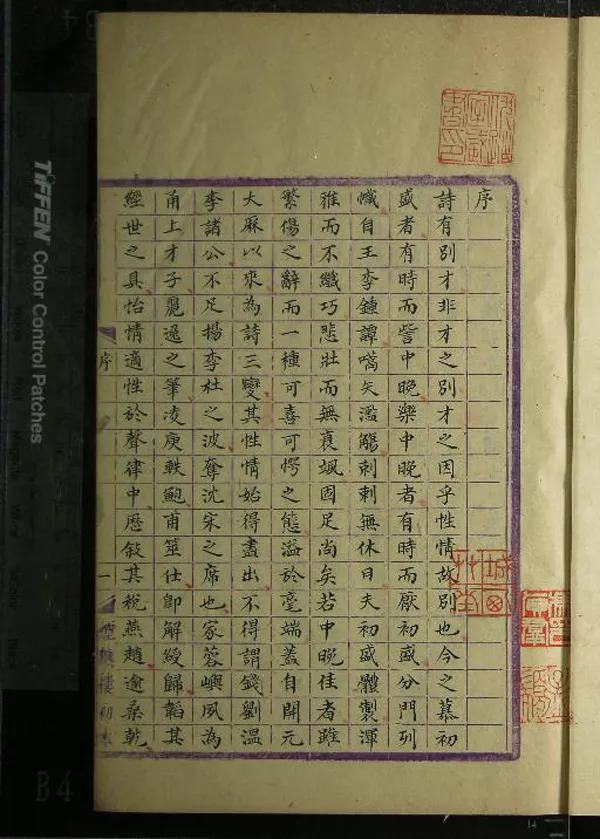 序
詩有別才非才之別才之因乎性情故別也今之慕初
盛者有時而訾中晚樂中晚者有時而厭初盛分門列
幟自王李鍾譚嚆矢濫觴刺刺無休日夫初盛體製渾
雅而不纖巧悲壯而無哀颯固足尚矣若中晚佳者雖
繁傷之辭而一種可喜可愕之態溢於毫端蓋自開元
大厤以來為詩三變其性情始得盡出不得謂錢劉溫
李諸公不足揚李杜之波奪沈宋之席也家蓉嶼夙為
甬上才子麗逸之筆凌庾軼鮑甫筮仕即解綬歸韜其
經世之具怡情適性於聲律中歷敘其稅燕趙逾桑乾
序
一
TIFFEN Color Control Patches
B4